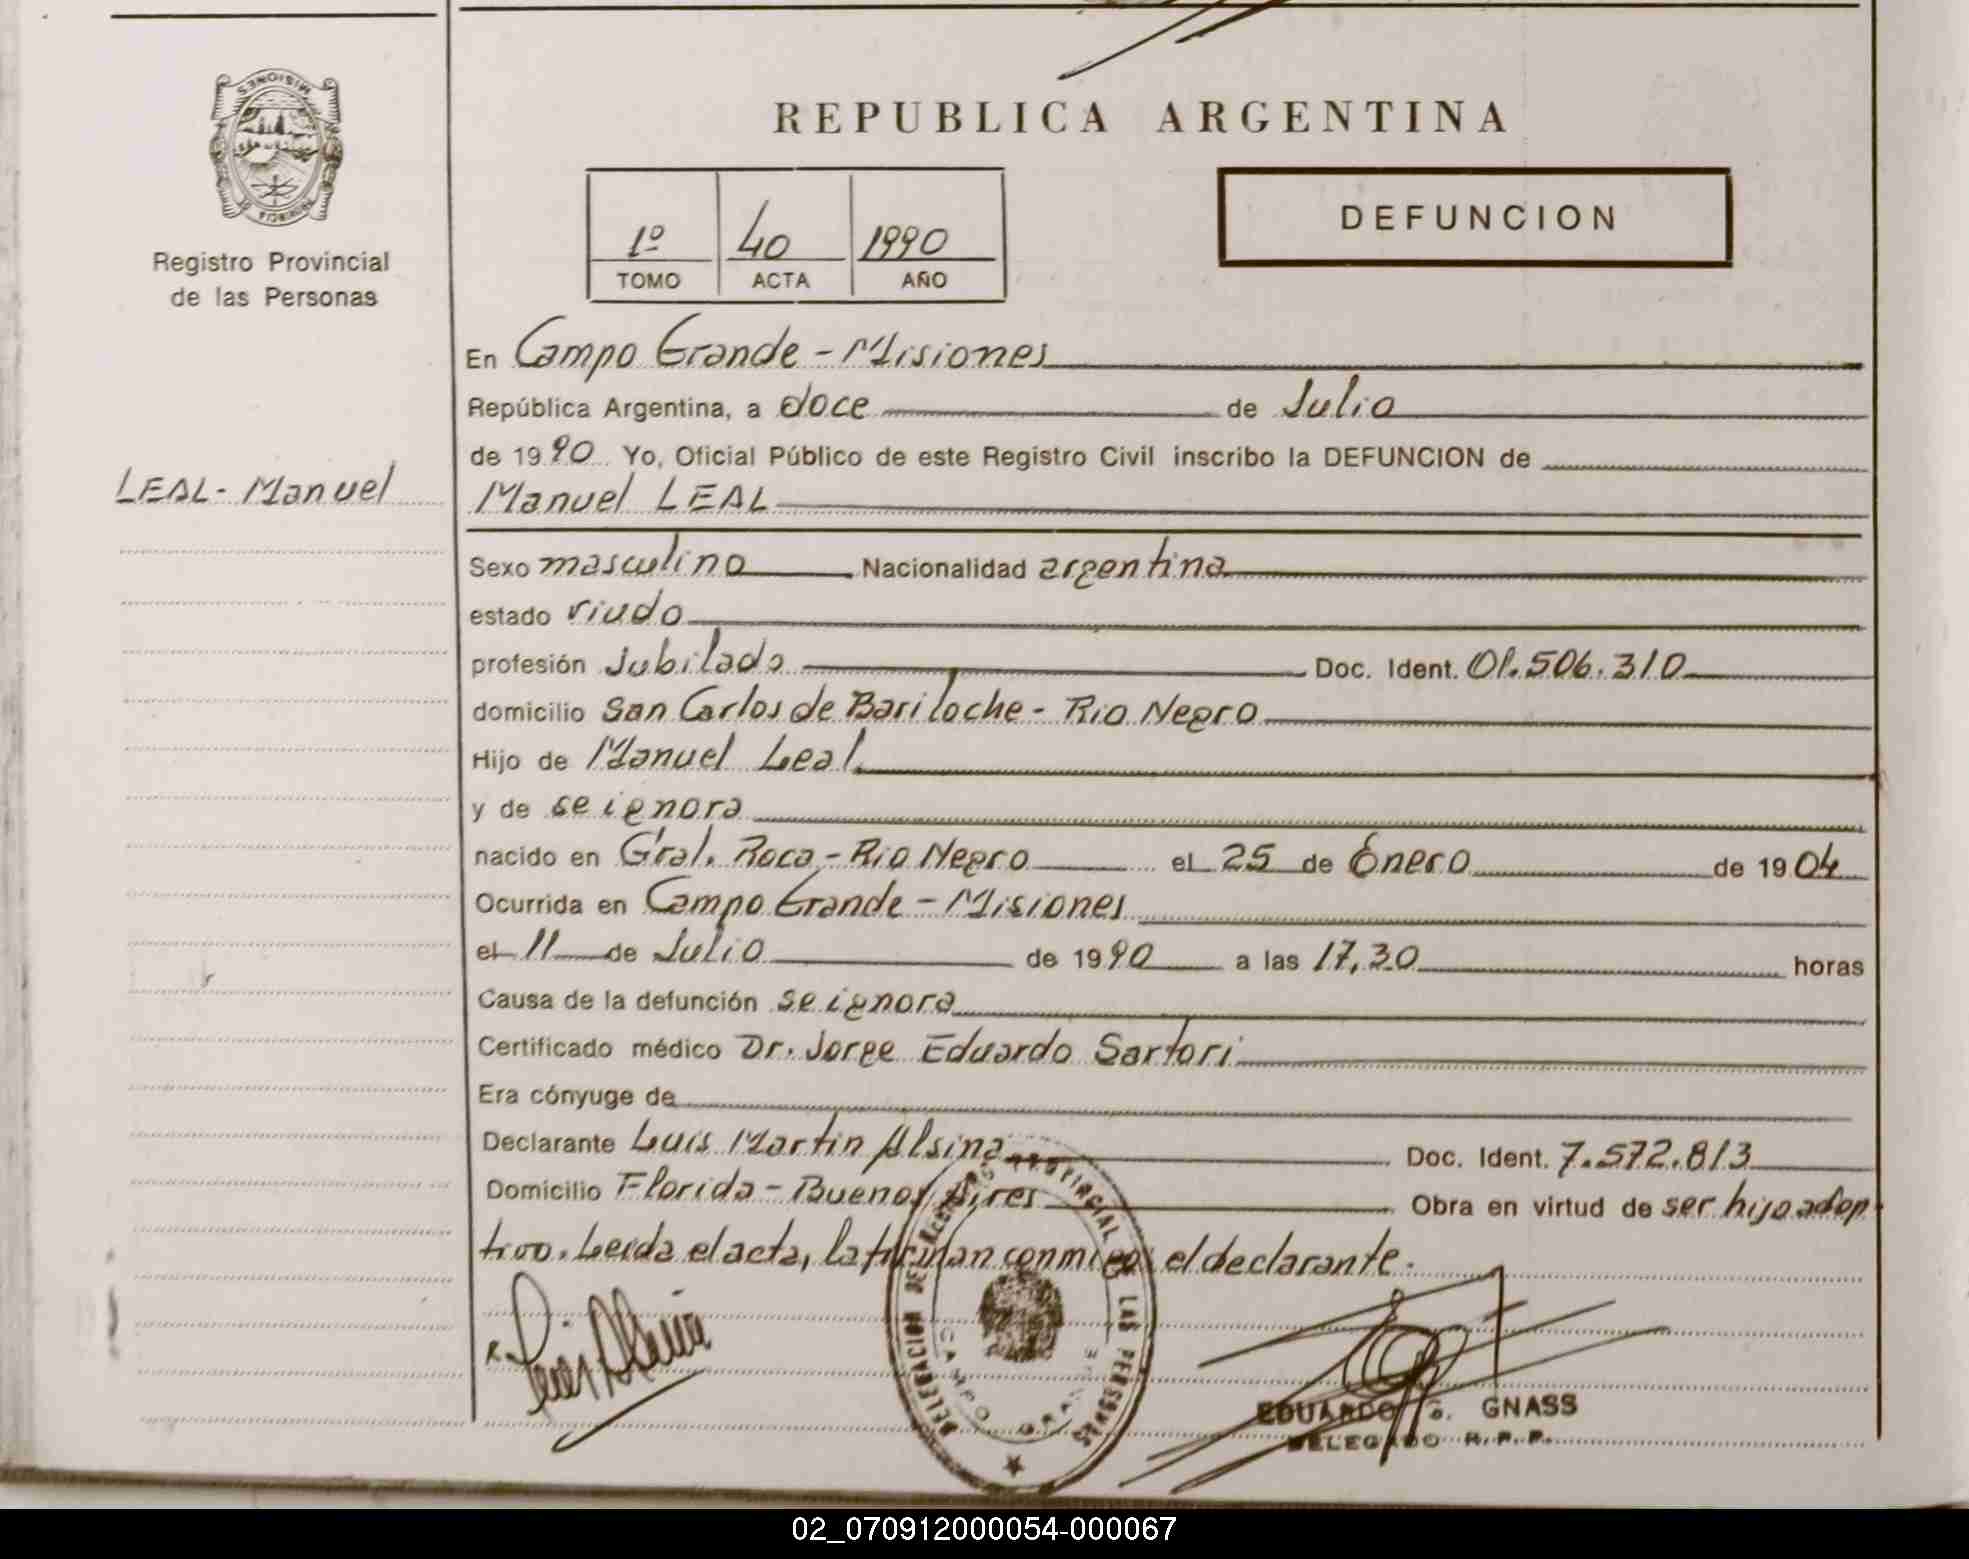 MISIONES
PROVINCIA DE
Registro Provincial
de las Personas
LEAL - Manuel
REPUBLICA ARGENTINA
1º 40 1990
TOMO ACTA AÑO
DEFUNCION
En Campo Grande - Misiones
República Argentina, a doce de Julio
de 1990 Yo, Oficial Público de este Registro Civil inscribo la DEFUNCION de
Manuel LEAL
Sexo masculino Nacionalidad argentina
estado viudo
profesión Jubilado Doc. Ident. 01.506.310
domicilio San Carlos de Bariloche - Rio Negro
Hijo de Manuel Leal
y de se ignora
nacido en Gral. Roca - Rio Negro el 25 de Enero de 1904
Ocurrida en Campo Grande - Misiones
el 11 de Julio de 1990 a las 17,30 horas
Causa de la defunción se ignora
Certificado médico Dr. Jorge Eduardo Sartori
Era cónyuge de
Declarante Luis Martin Alsina Doc. Ident. 7.572.813
Domicilio Florida - Buenos Aires Obra en virtud de ser hijo adop
tivo. Leida el acta, la firman conmigo el declarante.
DELEGACION DEL REGISTRO PROVINCIAL DE LAS PERSONAS
CAMPO GRANDE
EDUARDO G. GNASS
DELEGADO R.P.P.
02_070912000054-000067